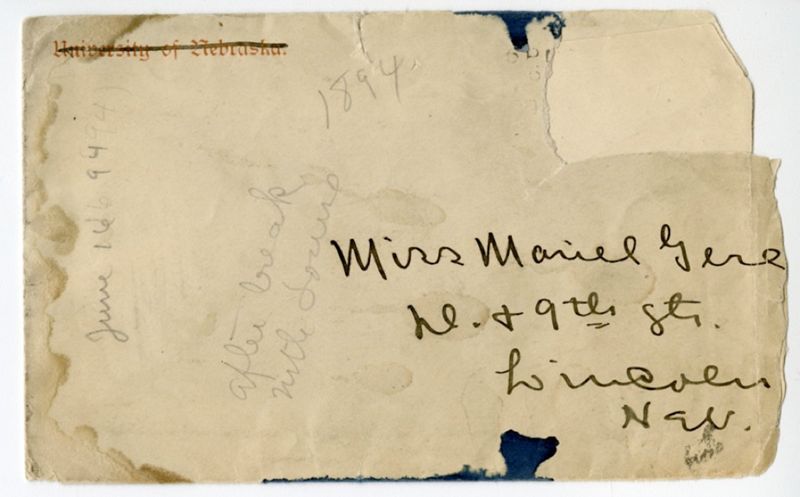 University of Nebraska.
1894
June 16
after break
with Louise
Miss Mariel Gere
D. & 9th sts.
Lincoln
Neb.